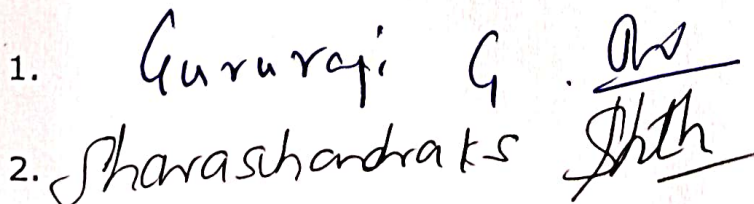 1. Gururaji G.
2. Sharaschandra KS